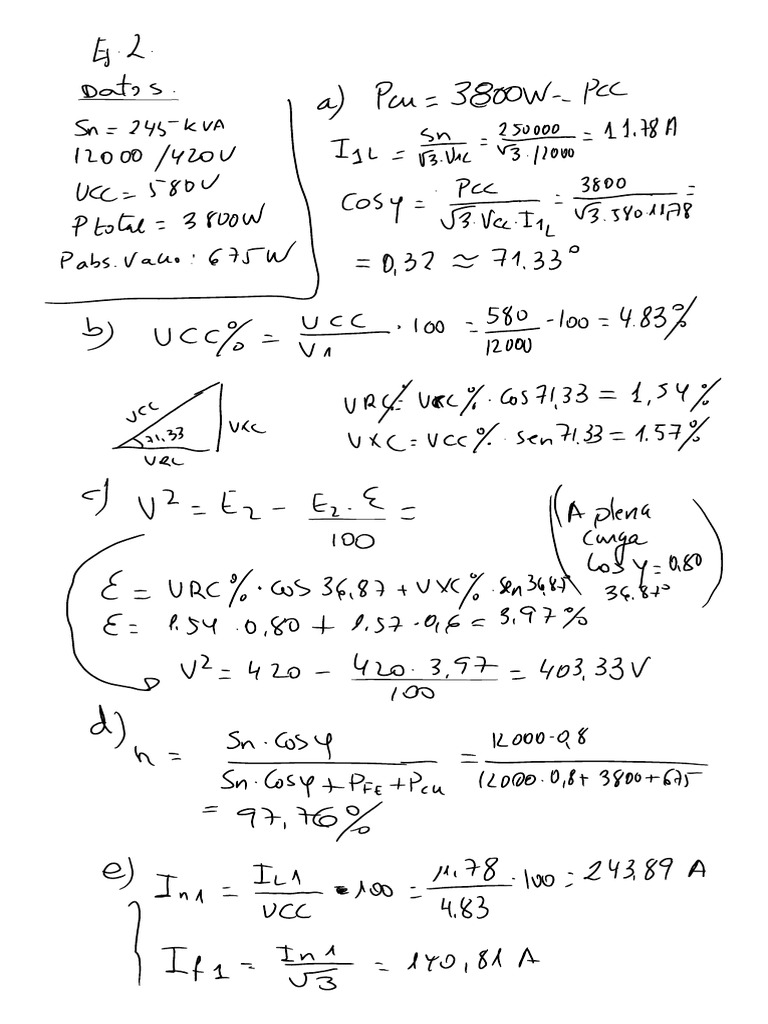 Ej. 2.
Datos.
Sn = 245 KVA
12000 / 420V
UCC = 580V
P total = 3800W
P abs. Vacio: 675W
a) Pcu = 3800W -- PCC
I1L = Sn / √3·V1C = 250000 / √3·12000 = 11.78 A
COS φ = PCC / √3·Vcc·I1L = 3800 / √3·580·11,78 =
= 0,32 ≈ 71.33°
b) UCC% = UCC / V1 · 100 = 580 / 12000 · 100 = 4.83%
UCC 71,33 UXC URC
URC% = UCC% · cos 71,33 = 1,54%
UXC = UCC% · sen 71.33 = 1.57%
c) V2 = E2 - E2 · Ɛ / 100 =
(A plena carga cos φ = 0,80 36.87°)
Ɛ = URC% · cos 36,87 + UXC% · sen 36,87
Ɛ = 1.54 · 0,80 + 1.57 · 0,6 = 3,97%
V2 = 420 - 420 · 3,97 / 100 = 403,33V
d) n = Sn · Cos φ / Sn · Cos φ + PFE + Pcu = 12000 · 0,8 / 12000 · 0,8 + 3800 + 675
= 97,76%
e) In1 = IL1 / UCC · 100 = 11.78 / 4.83 · 100 = 243,89 A
If1 = In1 / √3 = 140,81 A